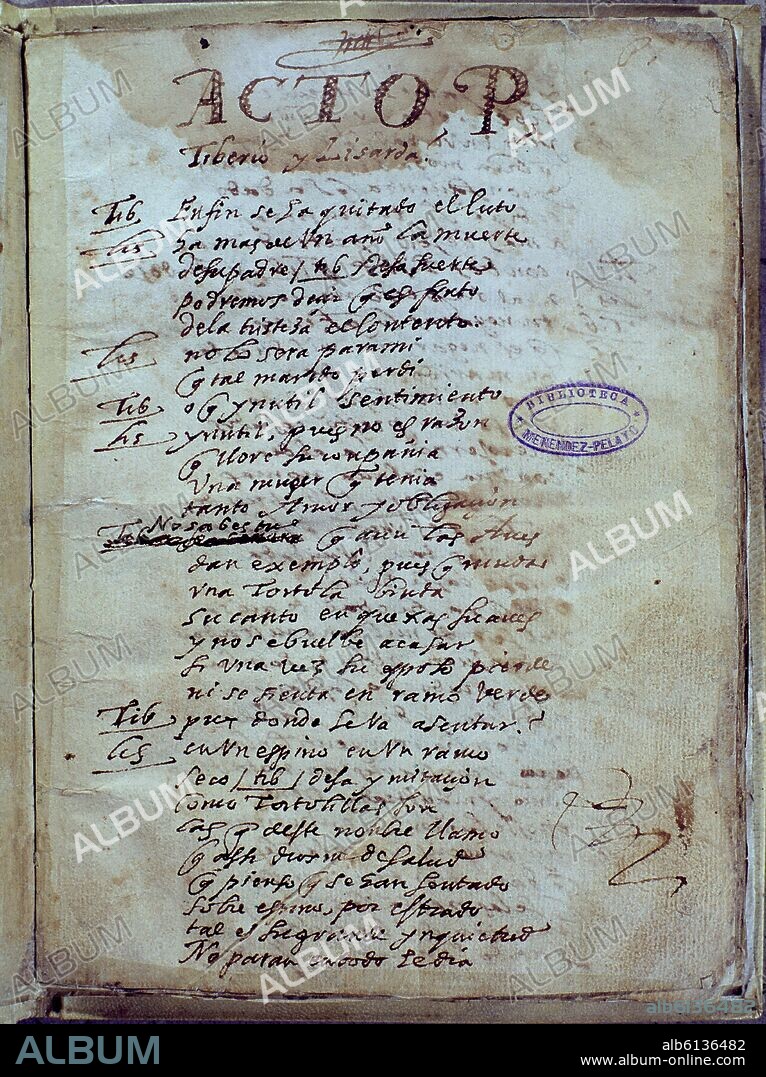 ACTO P.
Tiberio y Lisarda.
Tib Enfin se ha quitado el luto
Lis ha mas de un año la muerte
de su padre / tib desa suerte
podremos dezir q es fruto
de la tristeza el contento.
Lis no lo sera para mi
q tal marido perdi
Tib o q ynutil sentimiento
Lis ynutil, pues no es razon
q llore su conpañia
Una muger q tenia
tanto Amor y obligaçion
No sabes tu
q aun las Aves
dan exemplo, pues q muda
una Tortola biuda
su canto en quexas suaves
y no se buelbe a casar
si una vez su esposo pierde
ni se sienta en ramo verde
Tib pues donde se va asentar?
Lis en Un espino en Un ramo
seco / tib / desa ymitaçion
como Tortolillas son
las q deste nonbre llamo
q assi dios me de salud
q pienso q se han sentado
sobre espinos por estrado
tal es su grande ynquietud
No paran en todo el dia
BIBLIOTECA
MENENDEZ-PELAYO
ALBUM
alb6136482
alb6136482
www.album-online.com